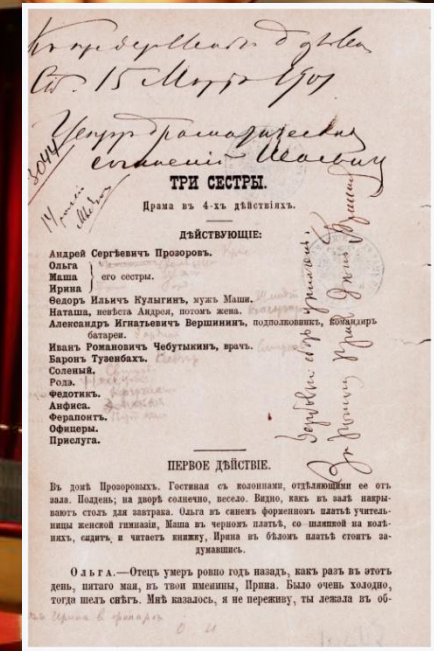 Къ представленію дозволено
Спб. 15 Марта 1901
Цензоръ драматическихъ
сочиненій
3044
ТРИ СЕСТРЫ.
Драма въ 4-хъ дѣйствіяхъ.
ДѢЙСТВУЮЩІЕ:
Андрей Сергѣевичъ Прозоровъ.
Ольга
Маша его сестры.
Ирина
Ѳедоръ Ильичъ Кулыгинъ, мужъ Маши.
Наташа, невѣста Андрея, потомъ жена.
Александръ Игнатьевичъ Вершининъ, подполковникъ, командиръ
батареи.
Иванъ Романовичъ Чебутыкинъ, врачъ.
Баронъ Тузенбахъ.
Соленый.
Родэ.
Федотикъ.
Анфиса.
Ферапонтъ.
Офицеры.
Прислуга.
ПЕРВОЕ ДѢЙСТВІЕ.
Въ домѣ Прозоровыхъ. Гостиная съ колоннами, отдѣляющими ее отъ
зала. Полдень; на дворѣ солнечно, весело. Видно, какъ въ залѣ накры-
ваютъ столъ для завтрака. Ольга въ синемъ форменномъ платьѣ учитель-
ницы женской гимназіи, Маша въ черномъ платьѣ, со шляпкой на колѣ-
няхъ, сидитъ и читаетъ книжку, Ирина въ бѣломъ платьѣ стоитъ за-
думавшись.
Ольга.—Отецъ умеръ ровно годъ назадъ, какъ разъ въ этотъ
день, пятаго мая, въ твои именины, Ирина. Было очень холодно,
тогда шелъ снѣгъ. Мнѣ казалось, я не переживу, ты лежала въ об-